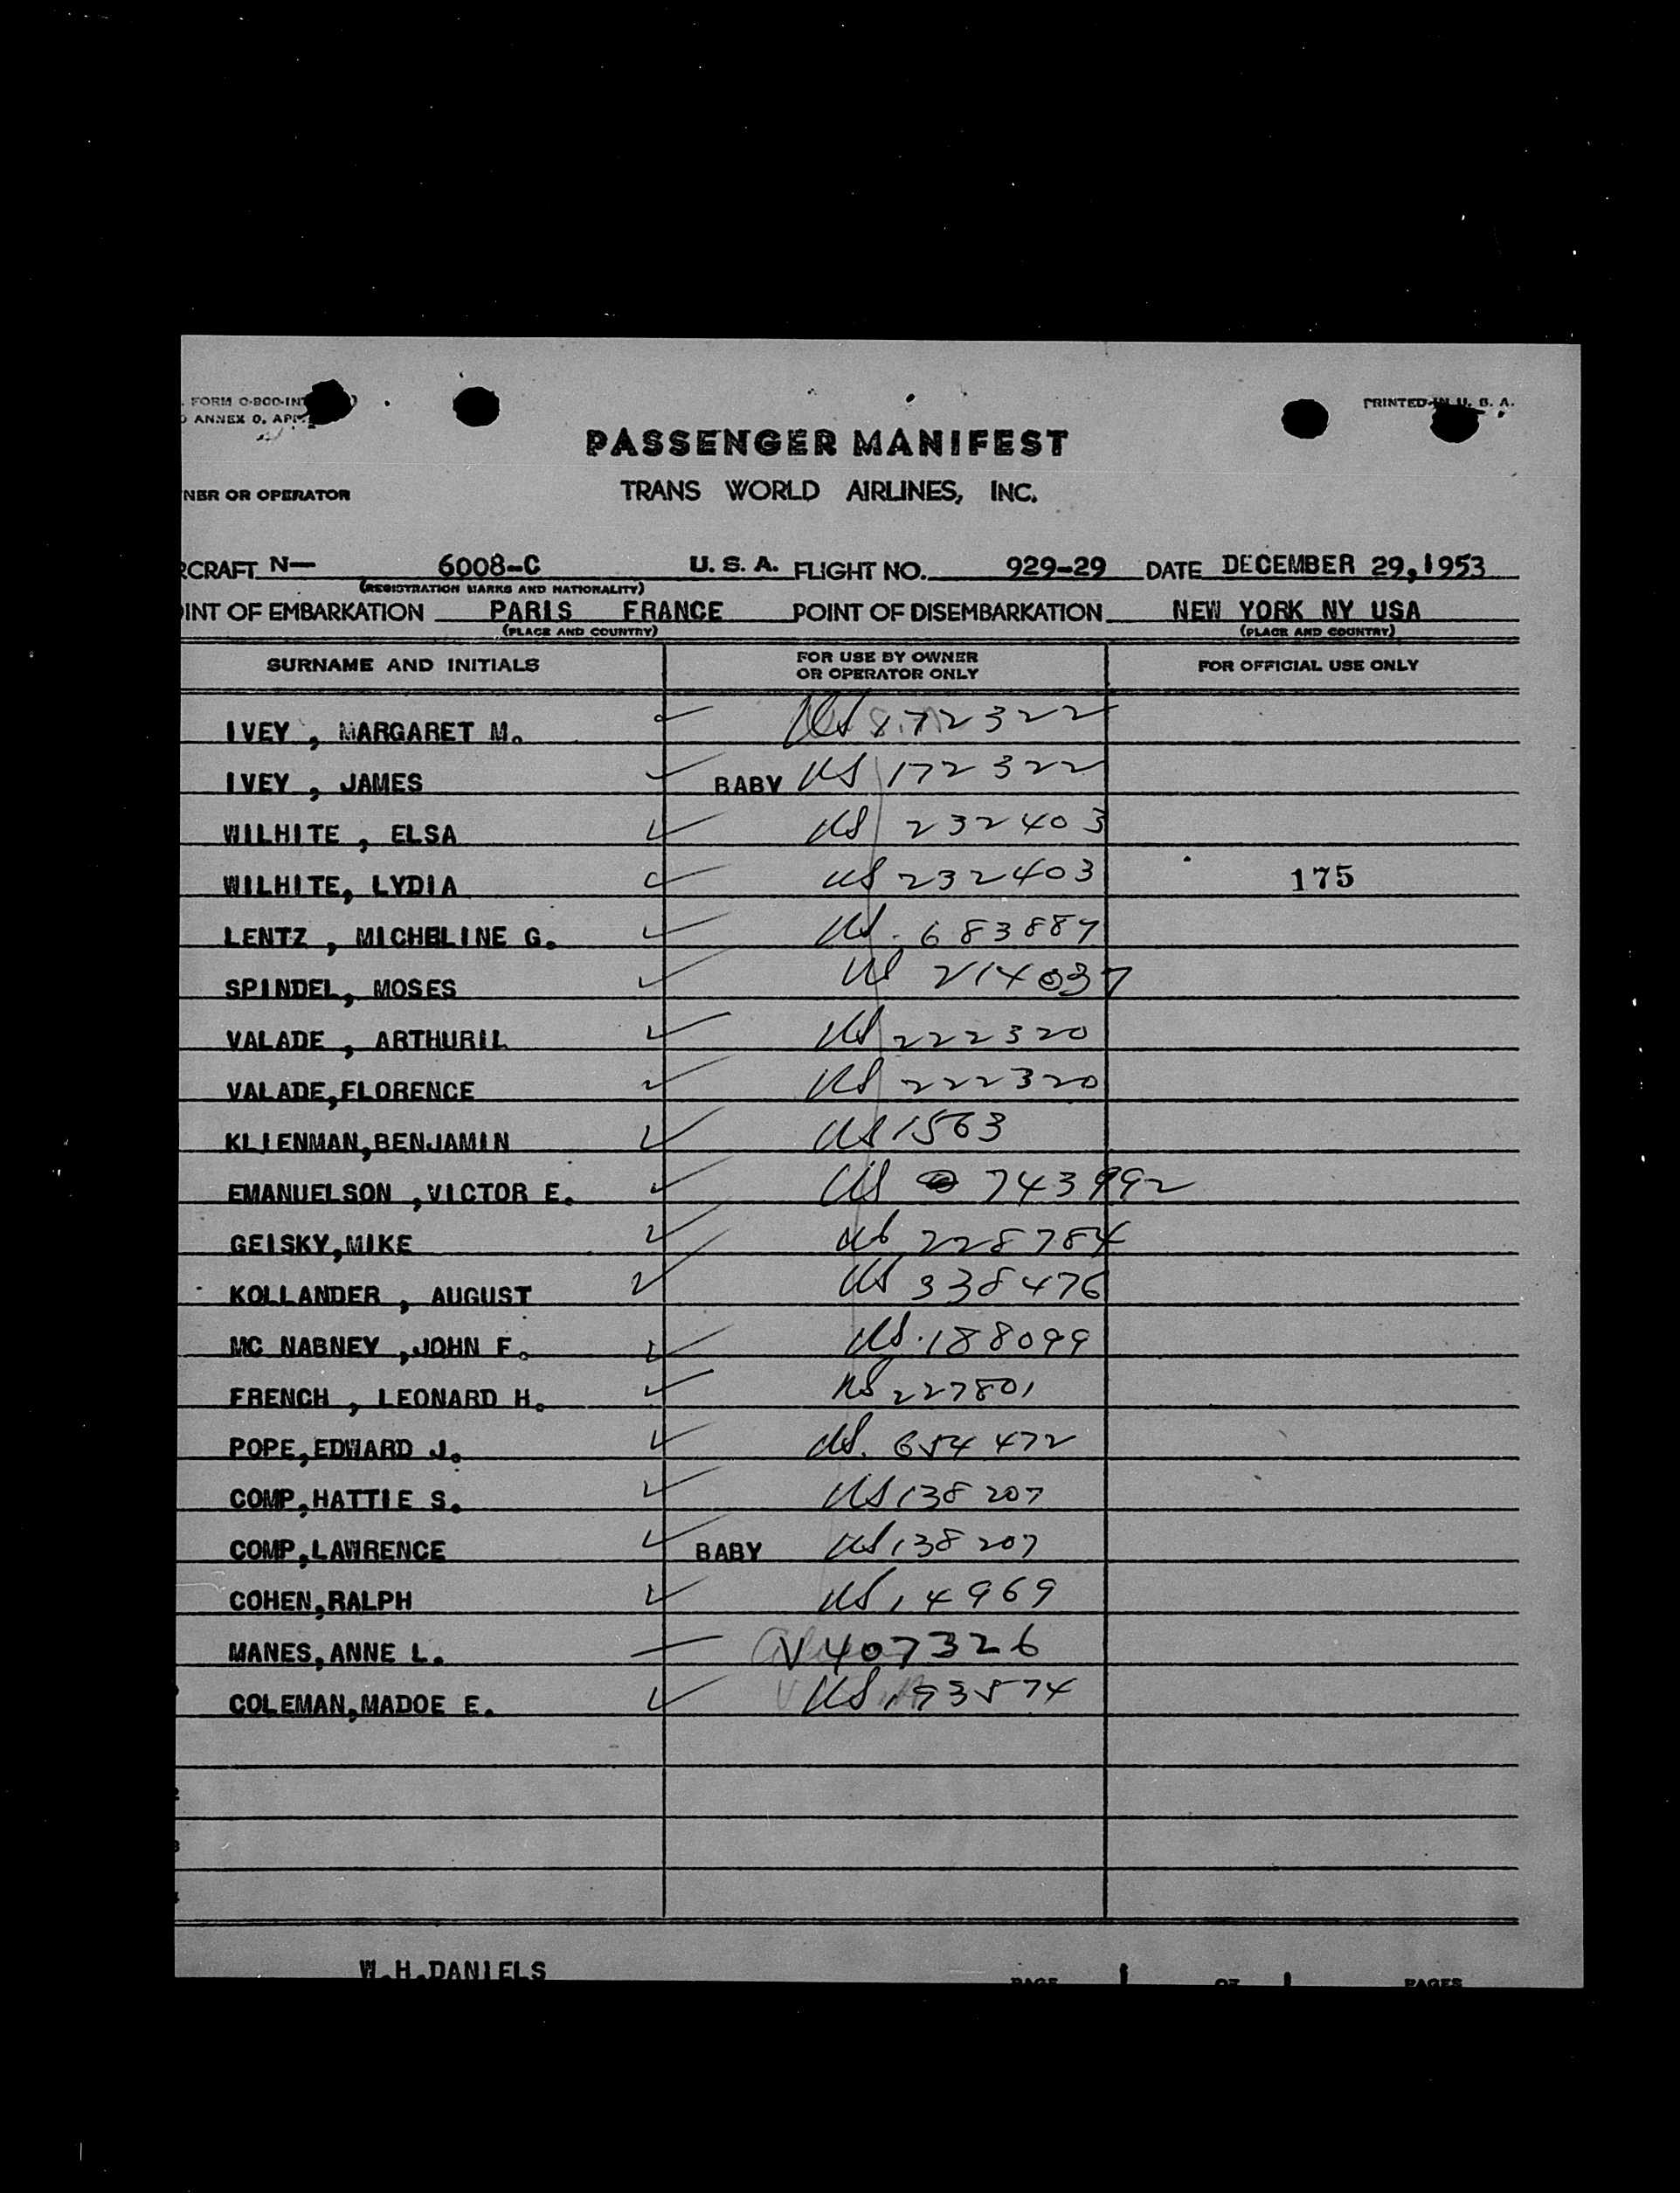 FORM O-800-INT
ANNEX 0, APP.
PRINTED IN U. S. A.
PASSENGER MANIFEST
TRANS WORLD AIRLINES, INC.
NER OR OPERATOR
RCRAFT N— 6008-C U. S. A. FLIGHT NO. 929-29 DATE DECEMBER 29,1953
(REGISTRATION MARKS AND NATIONALITY)
INT OF EMBARKATION PARIS FRANCE POINT OF DISEMBARKATION NEW YORK NY USA
(PLACE AND COUNTRY) (PLACE AND COUNTRY)
SURNAME AND INITIALS FOR USE BY OWNER OR OPERATOR ONLY FOR OFFICIAL USE ONLY
IVEY , MARGARET M. US 172322
IVEY , JAMES BABY US 172322
WILHITE , ELSA US 232403
WILHITE, LYDIA US 232403 175
LENTZ , MICHELINE G. US. 683887
SPINDEL, MOSES US 214037
VALADE , ARTHURIL US 222320
VALADE,FLORENCE US 222320
KLIENMAN,BENJAMIN US 1563
EMANUELSON ,VICTOR E. US 743992
GEISKY,MIKE US 228784
KOLLANDER , AUGUST US 338476
MC NABNEY ,JOHN F. US. 188099
FRENCH , LEONARD H. US 227801
POPE,EDWARD J. US. 654472
COMP,HATTIE S. US 138207
COMP,LAWRENCE BABY US 138207
COHEN,RALPH US 14969
MANES,ANNE L. V407326
COLEMAN,MADOE E. US 193574
W.H.DANIELS
PAGE 1 OF 1 PAGES